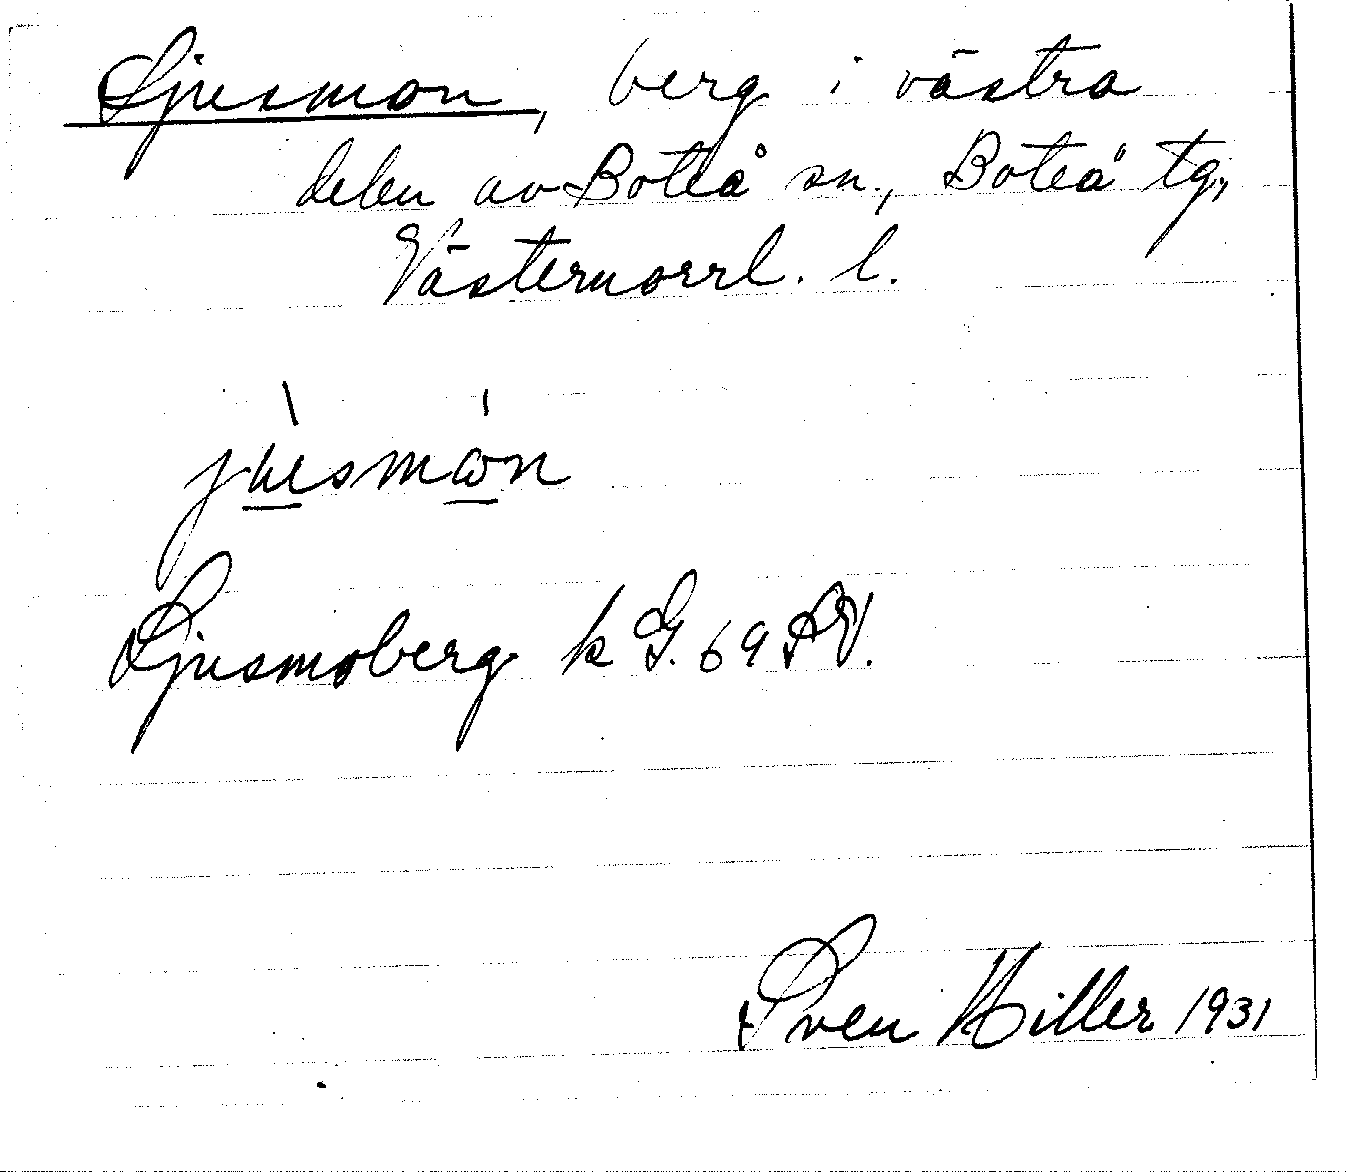 Ljusmon, berg i västra
delen av Boteå sn., Boteå tg,
Västernorrl. l.
Ljusmoberg k G. 69 SV.
Sven Hiller 1931